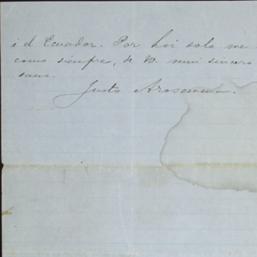 i d Ecuador. Por hoi solo me
como siempre, de V. mui sincero
Justo Arosemena.